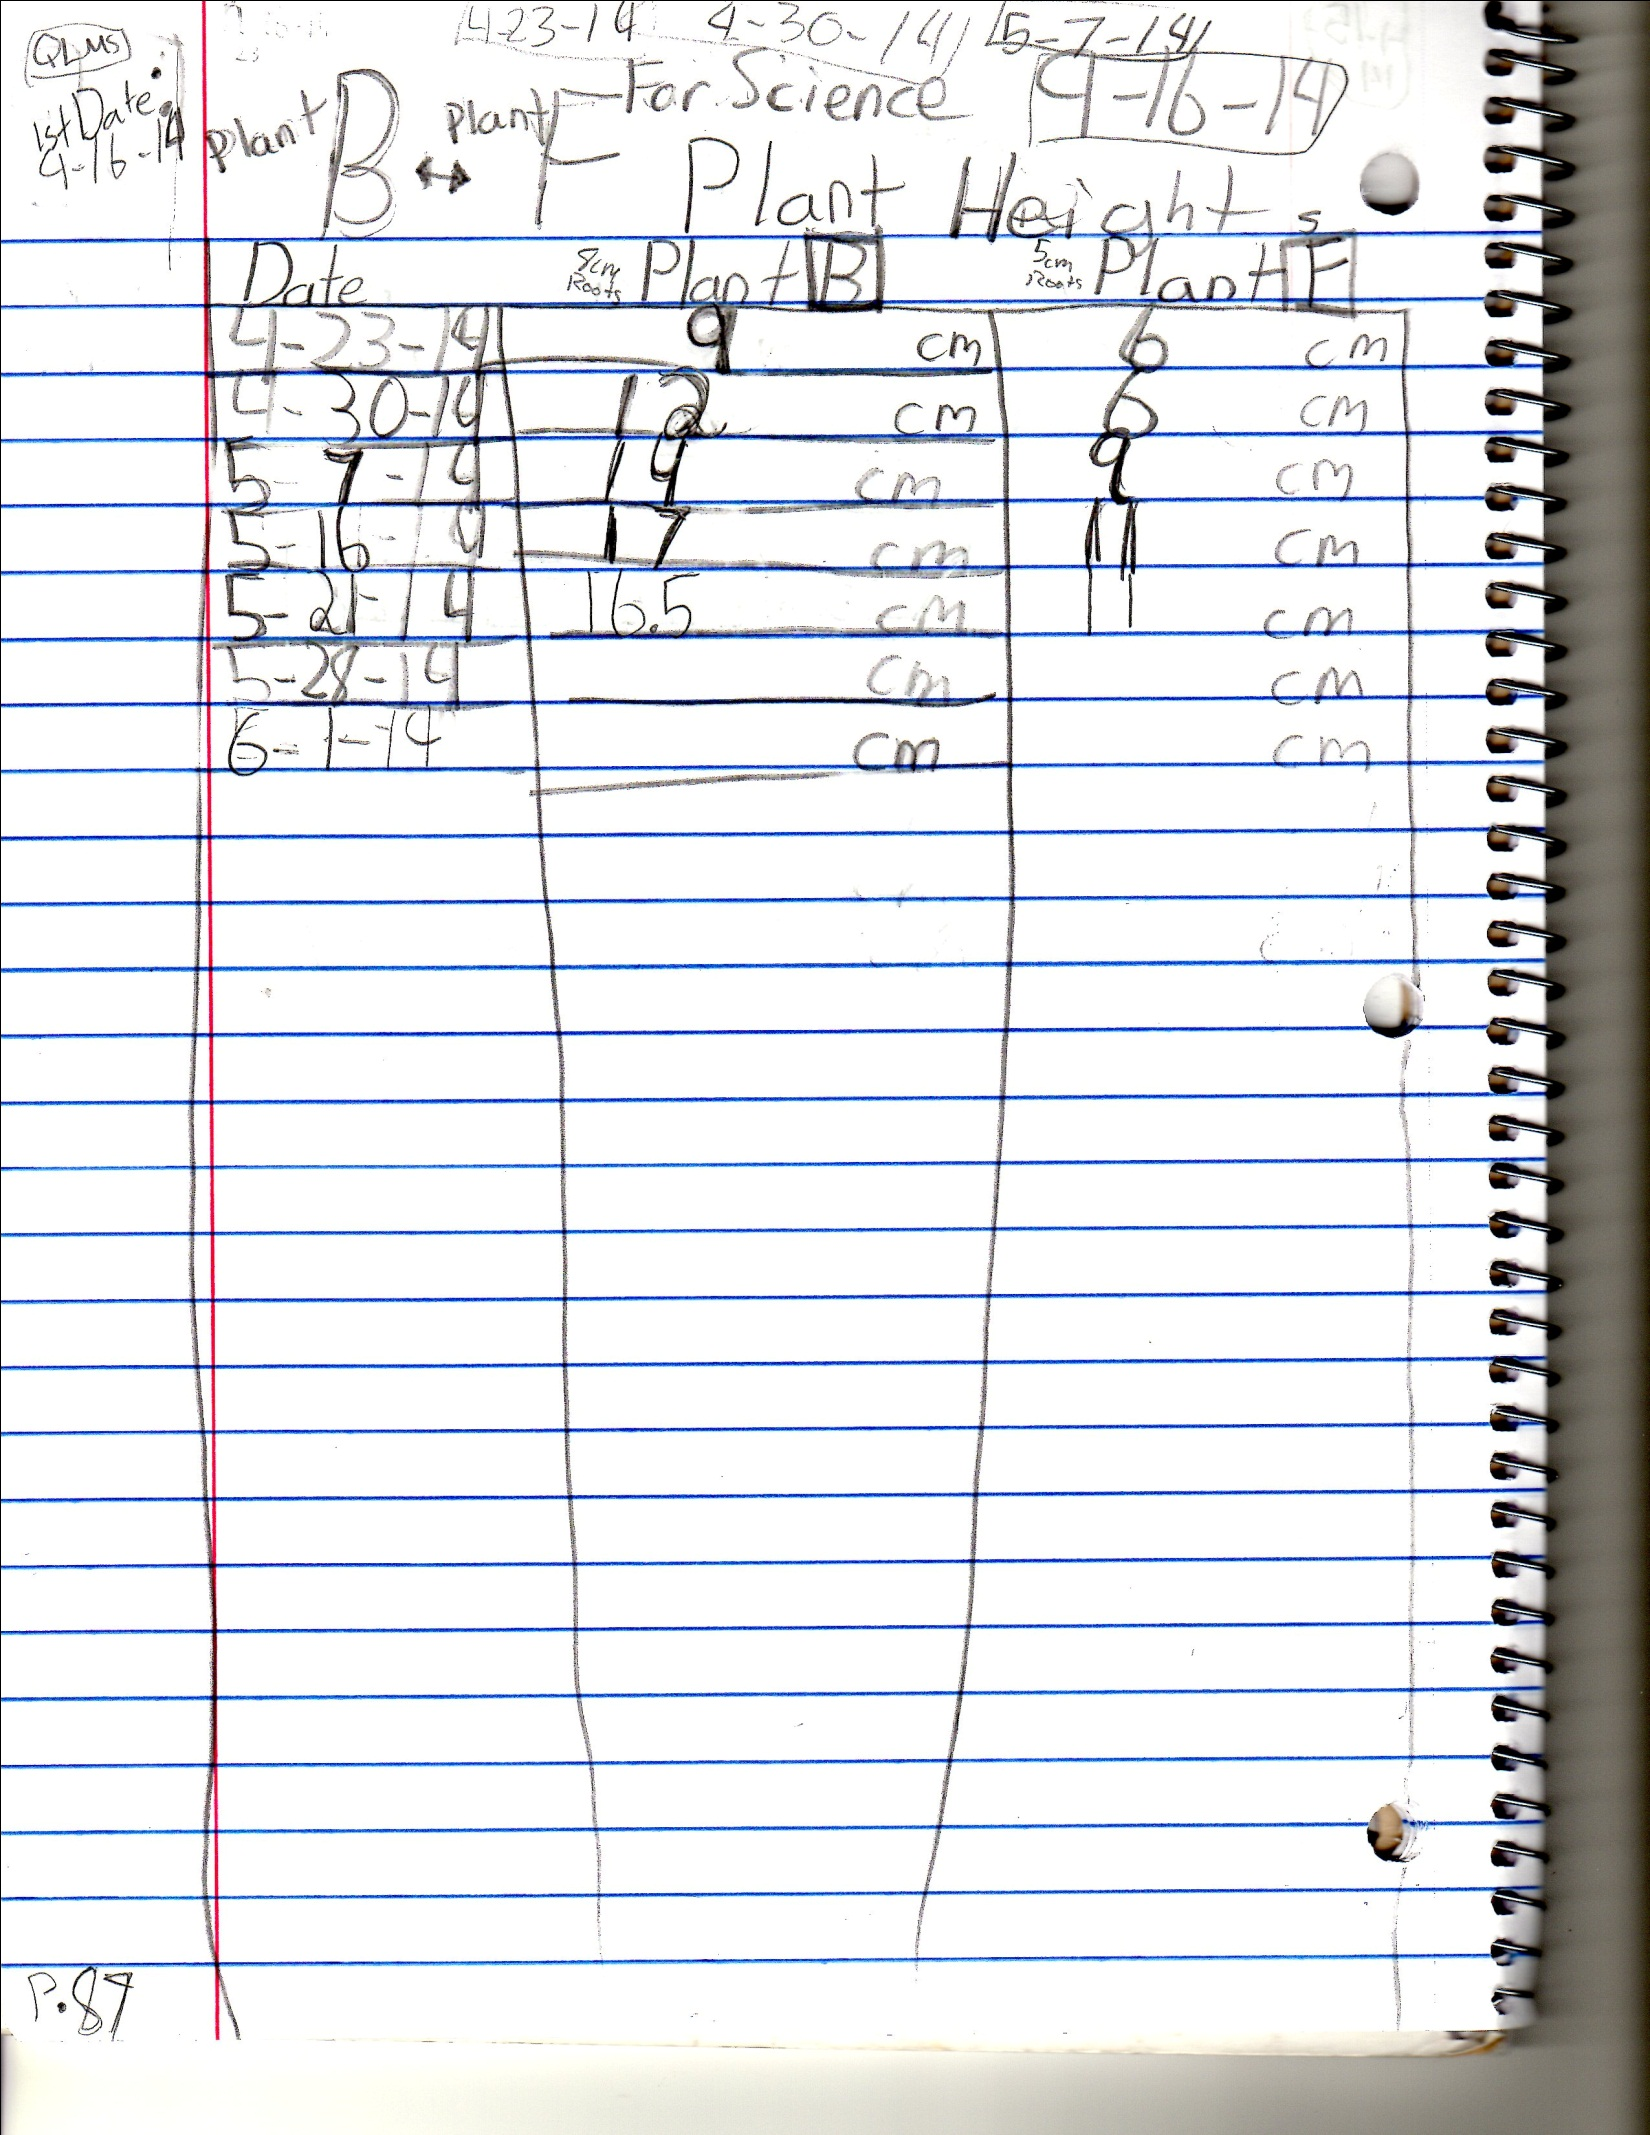 4-23-14 4-30-14 5-7-14
QLMS
1st Date:
4-16-14
plant B ↔ plant F - For Science 4-16-14
Plant Heights
Date 8cm Roots Plant B 5cm Roots Plant F
4-23-14 9 cm 6 cm
4-30-14 12 cm 6 cm
5-7-14 14 cm 9 cm
5-16-14 17 cm 11 cm
5-21-14 16.5 cm 11 cm
5-28-14 cm cm
6-1-14 cm cm